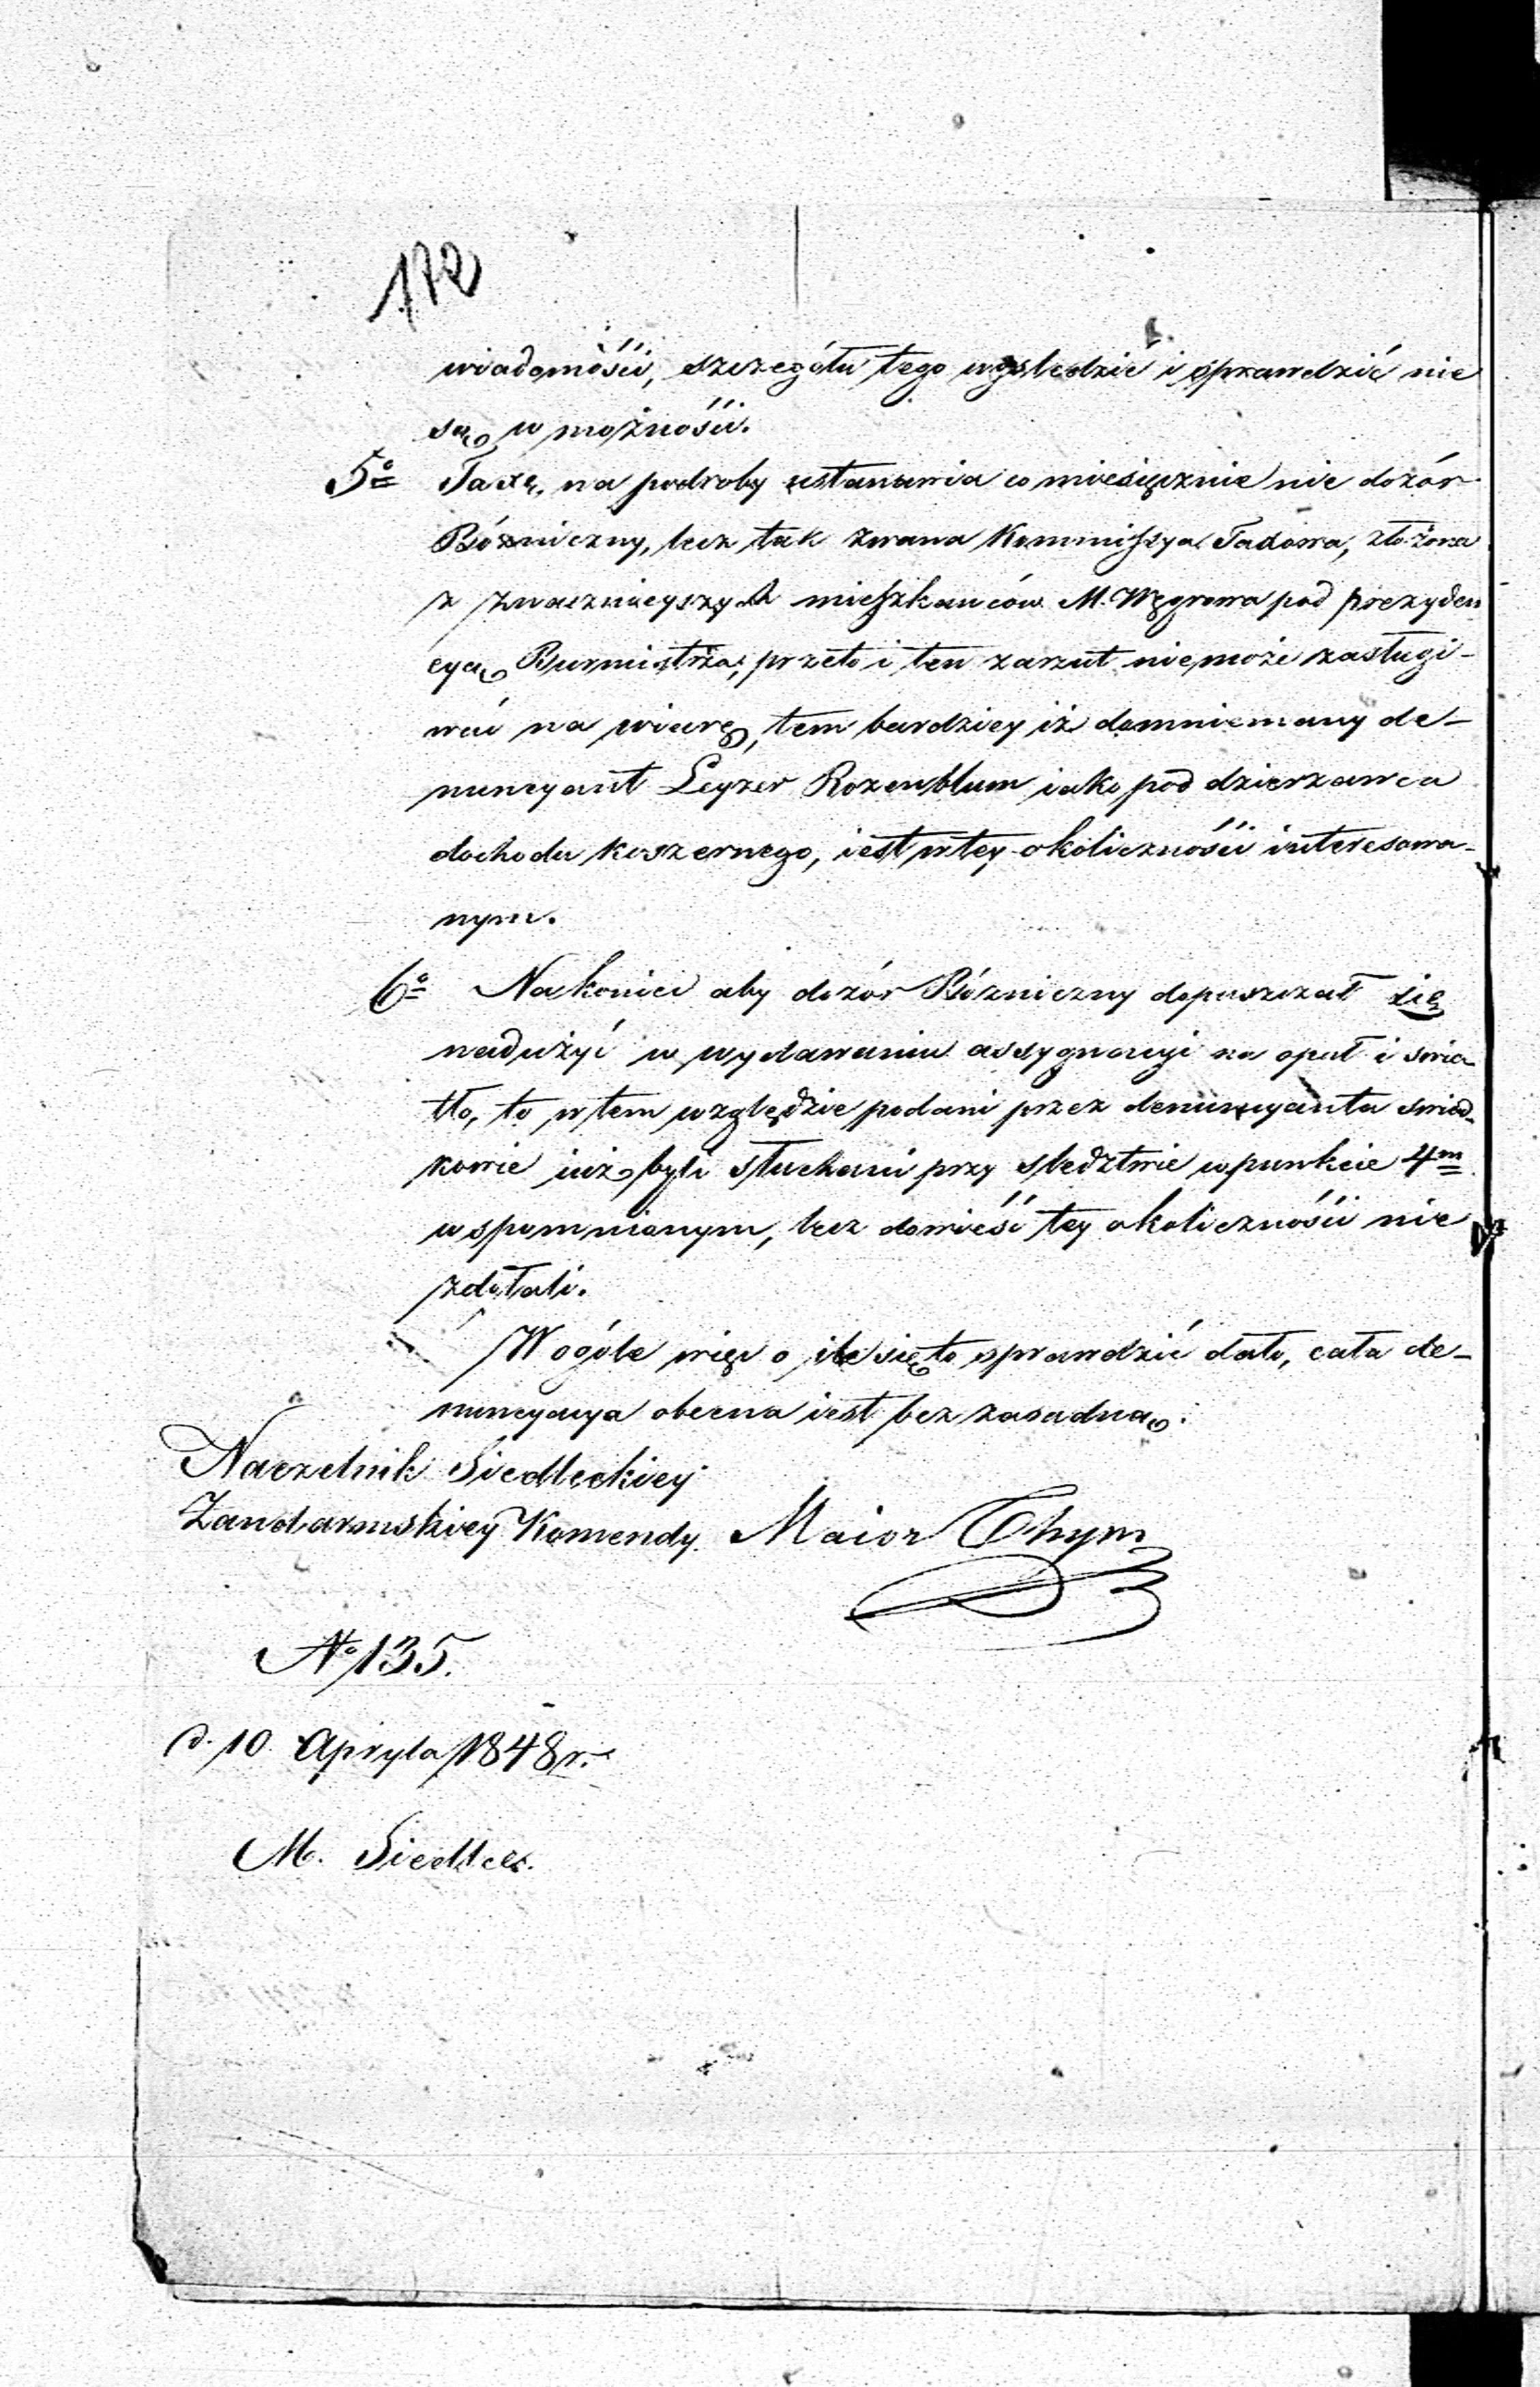 172
wiadomości, szczegółu tego wysledzić i sprawdzić nie
są w możności.
5o Taxę, na podroby ustanawia co miesięcznie nie dozór
Bózniczny, lecz tak zwana Kommissya Taxowa, złożona
z znacznieyszych mieszkańców M. Węgrowa pod prezyden
cyą Burmistrza, przeto i ten zarzut nie może zasługi-
wać na wiarę, tem bardziey iż domniemany de-
nuncyant Leyzer Rozenblum iako pod dzierzawca
dochodu koszernego, iest w tey okoliczności interesowa-
nym.
6o Nakoniec aby dozór Bózniczny dopuszczał się
nadużyć w wydawaniu assygnacyi na opał i swia
tło, to w tem względzie podani przez denuncyanta swiad-
kowie iuż byli słuchani przy sledztwie w punkcie 4m
wspomnionym, lecz dowieść tey okoliczności nie
zdołali.
W ogóle więc o ile się to sprawdzić dało, cała de-
nuncyacya obecna iest bez zasadną.
Naczelnik Siedleckiey
Żandarmskiey Komendy. Maior Thym
No 135.
d. 10 Apryla 1848 r.
M. Siedlce.